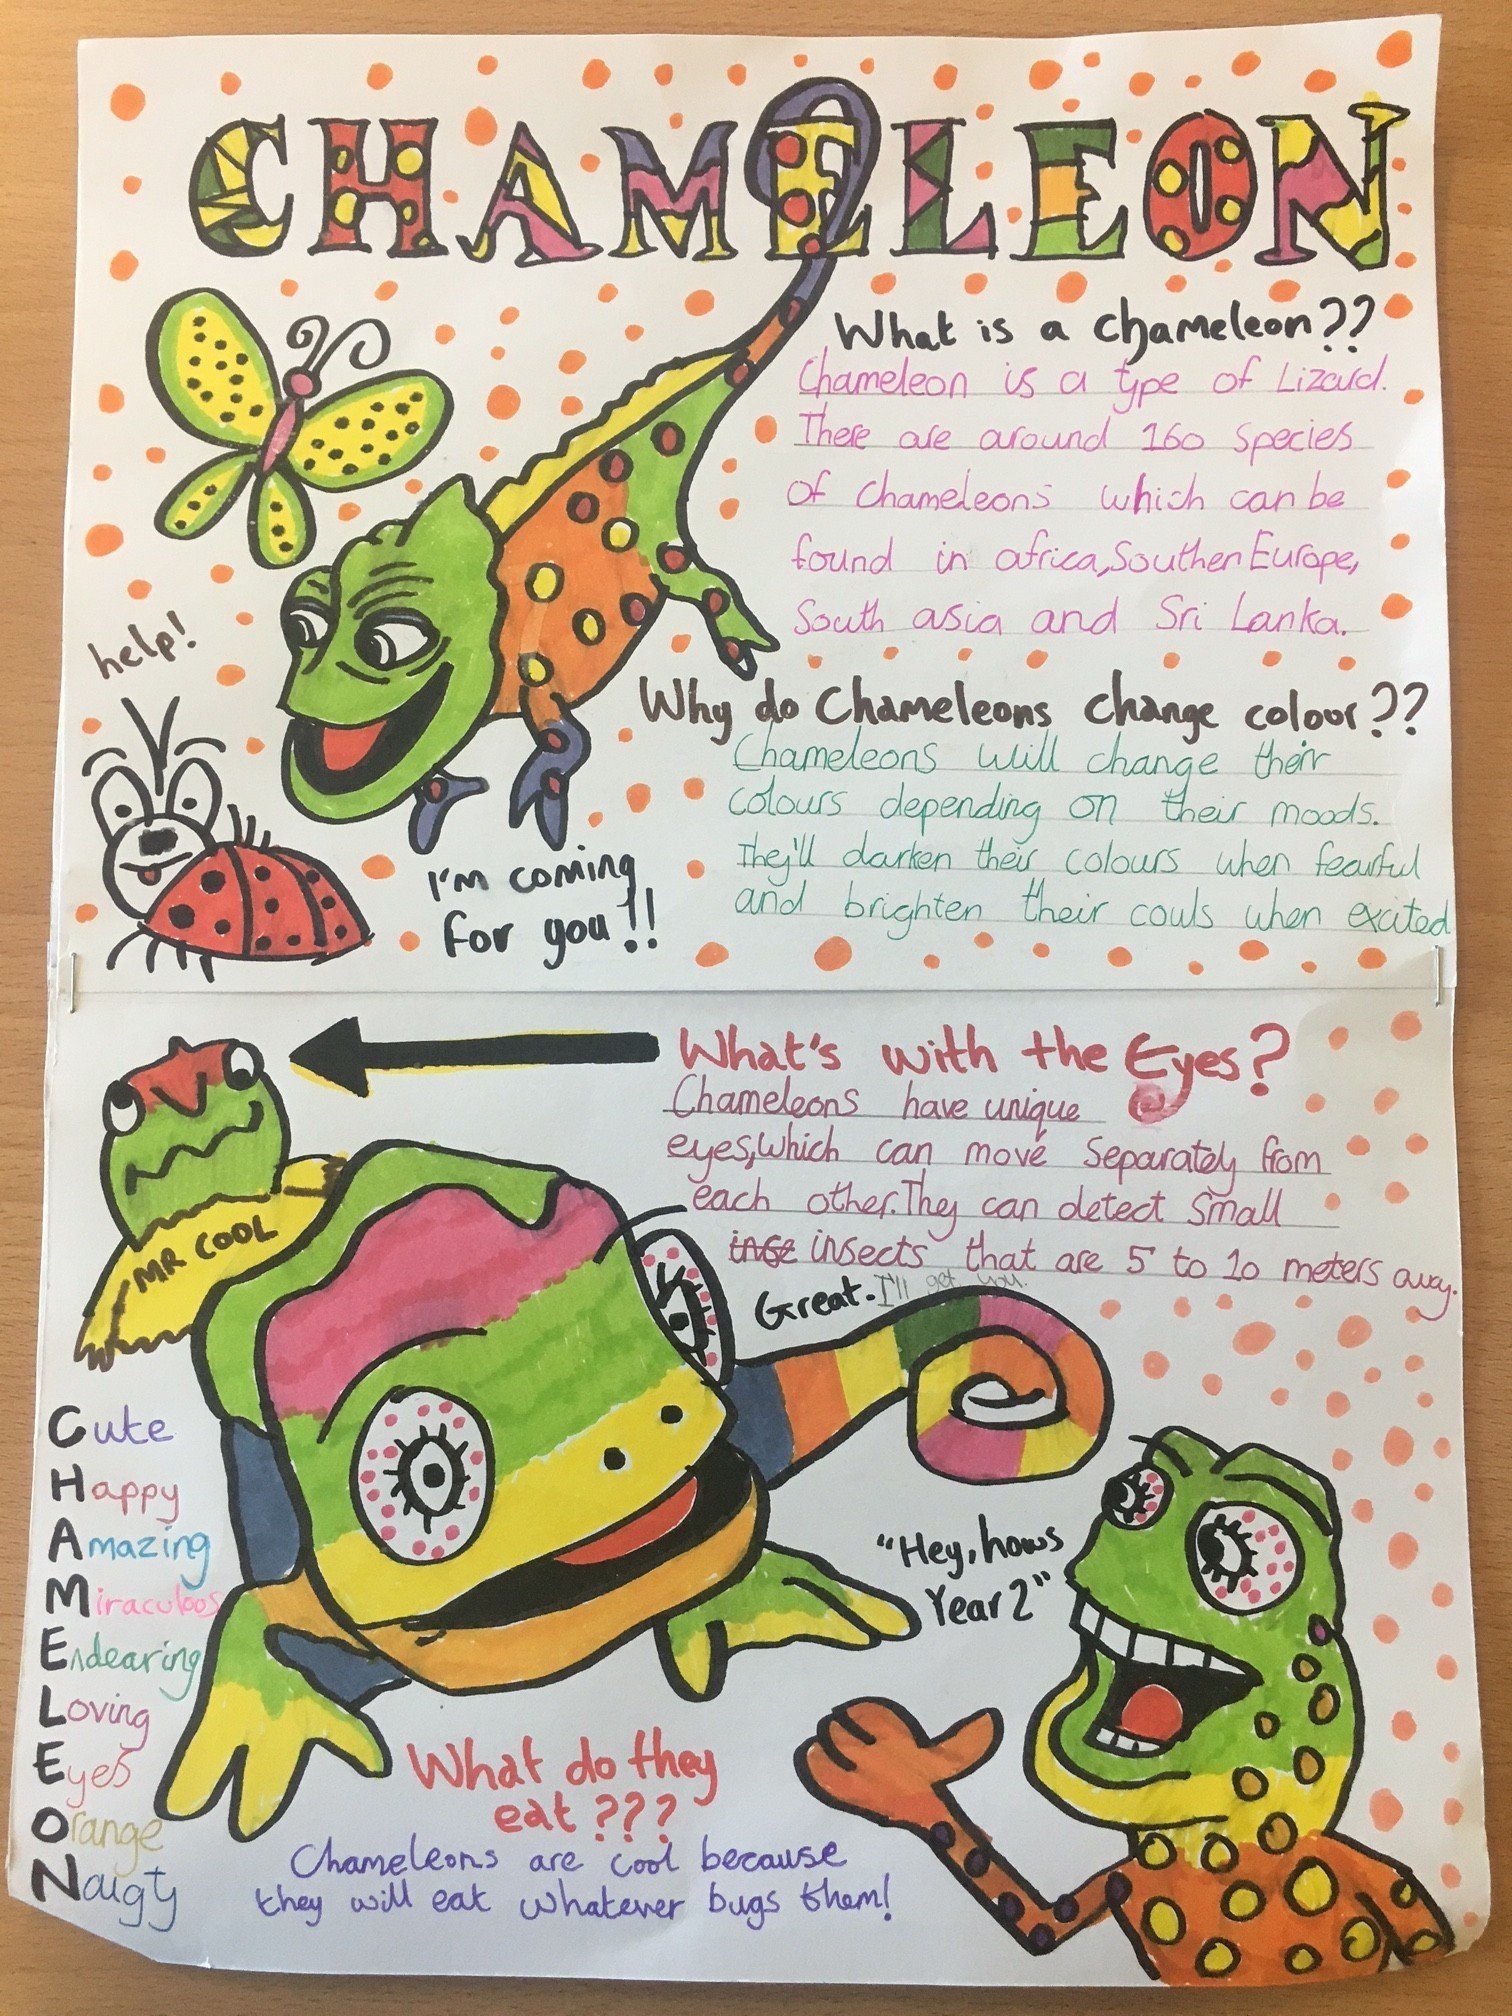 CHAMELEON
What is a chameleon??
Chameleon is a type of Lizard.
There are around 160 species
of chameleons which can be
found in africa, Southern Europe,
South asia and Sri Lanka.
help!
Why do Chameleons change colour??
Chameleons will change their
colours depending on their moods.
They'll darken their colours when fearful
and brighten their couls when excited
I'm coming
for you!!
What's with the Eyes?
Chameleons have unique
eyes, which can move separately from
each other. They can detect small
inse insects that are 5 to 10 meters away.
Great. I'll get you.
MR COOL
Cute
Happy
Amazing
Miraculoos
Endearing
Loving
Eyes
Orange
Naigty
"Hey, hows
Year 2"
What do they
eat???
Chameleons are cool because
they will eat whatever bugs them!